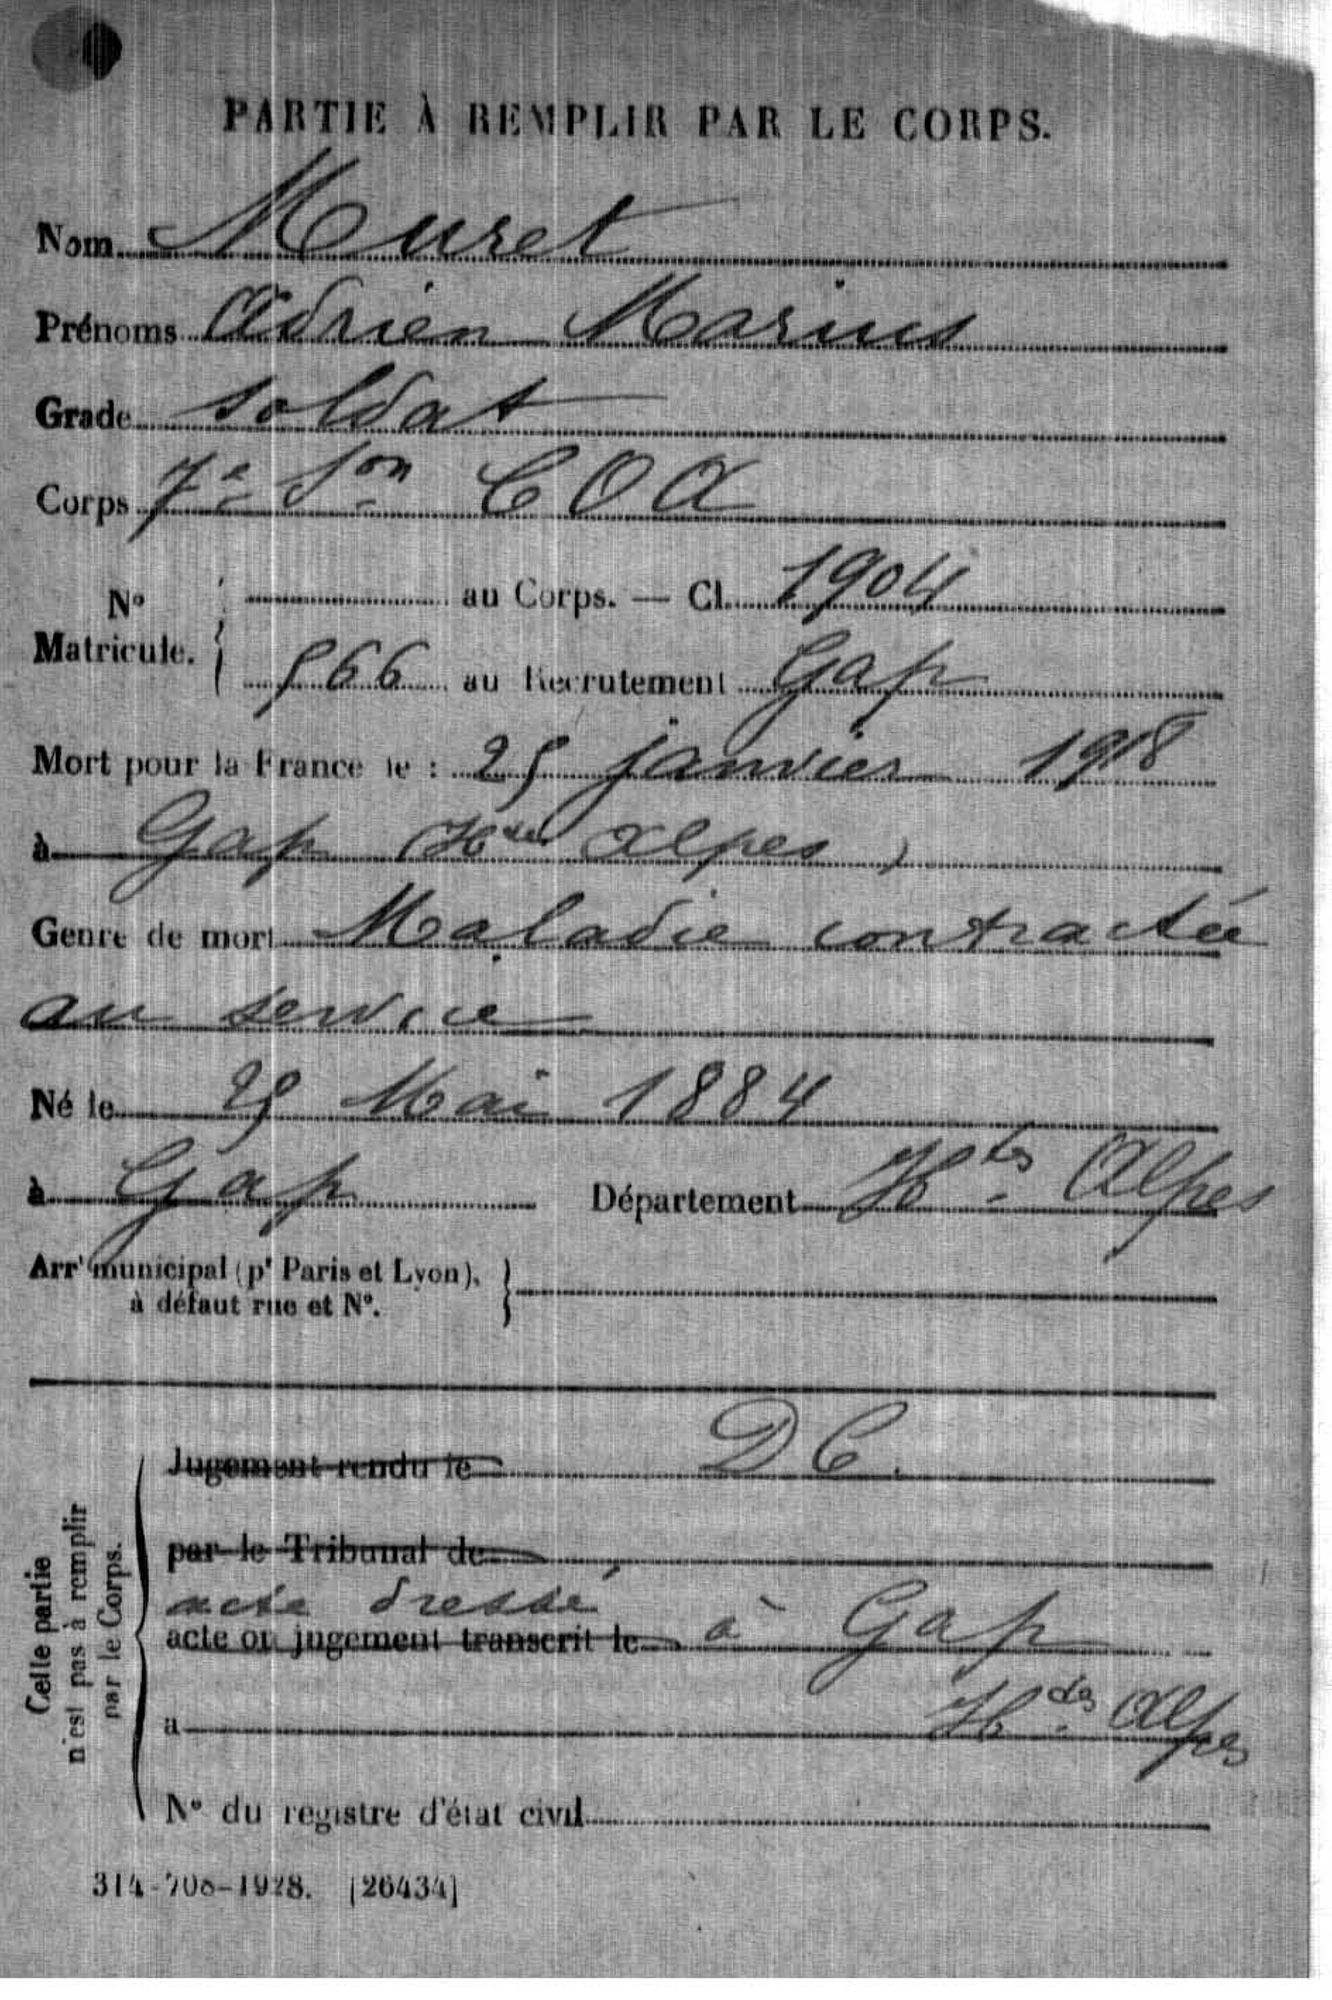 PARTIE À REMPLIR PAR LE CORPS.
Nom Muret
Prénoms Adrien Marius
Grade soldat
Corps 7e Son C O A
No Matricule. { au Corps. — Cl. 1904
566 au Recrutement Gap
Mort pour la France le : 25 janvier 1918
à Gap (Htes Alpes)
Genre de mort Maladie contractée
au service
Né le 25 Mai 1884
à Gap Département Htes Alpes
Arrt municipal (pr Paris et Lyon),
à défaut rue et No.
Jugement rendu le D C.
par le Tribunal de
acte dressé
acte ou jugement transcrit le à Gap
a Htes Alpes
No du registre d'état civil
Cette partie
n'est pas à remplir
par le Corps.
314-708-1928. [26434]